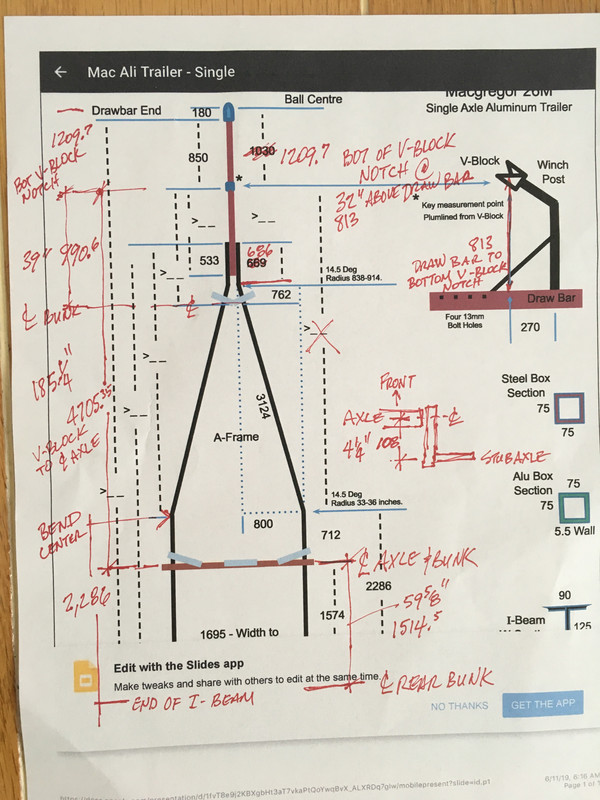 Mac Ali Trailer - Single
Drawbar End
180
Ball Centre
Macgregor 26M
Single Axle Aluminum Trailer
1209.7
BOT V-BLOCK
NOTCH
850
1030
1209.7
BOT OF V-BLOCK
NOTCH @
32" ABOVE DRAW BAR
813
V-Block
Winch
Post
*
*
Key measurement point
Plumlined from V-Block
>__
>__
39" 990.6
533
686
669
>__
14.5 Deg
Radius 838-914.
813
DRAW BAR TO
BOTTOM V-BLOCK
NOTCH
Draw Bar
℄ BUNK
℄
762
Four 13mm
Bolt Holes
270
>__
185.¼"
4705.35
V-BLOCK
TO ℄ AXLE
>__
3124
FRONT
AXLE
℄
4¼" 108
STUB AXLE
Steel Box
Section
75
75
>__
A-Frame
Alu Box
Section
75
75
5.5 Wall
>__
14.5 Deg
Radius 33-36 inches.
BEND
CENTER
800
712
℄ AXLE & BUNK
2,286
2286
59 5/8"
1514.5
1574
90
I-Beam
125
1695 - Width to
Edit with the Slides app
Make tweaks and share with others to edit at the same time.
℄ REAR BUNK
END OF I-BEAM
NO THANKS
GET THE APP
6/11/19, 6:16 AM
Page 1 of 1